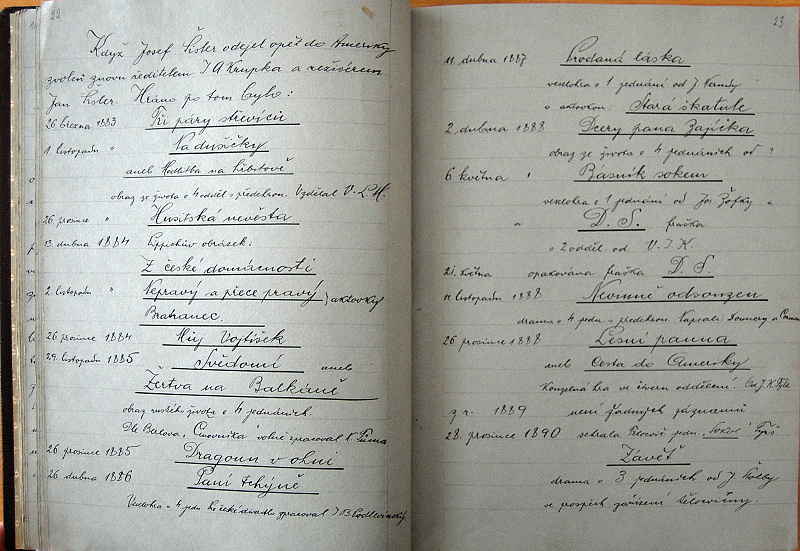 22
Když Josef Šisler odejel opět do Ameriky
zvolen znovu ředitelem J A Krupka a režisérem
Jan Šisler. Hráno po tom bylo:
26 března 1883 Tři páry střevíců
1. listopadu " Na dušičky
aneb Modlitba na hřbitově
obraz ze života o 4 odděl s předehrou. Vzdělal V. L. M.
26. prosince " Husitská nevěsta
13. dubna 1884 obrázek:
Z české domácnosti
2. listopadu " Nepravý a přece pravý } aktovky
Bratranec
26. prosince 1884 Můj Vojtíšek
29. listopadu 1885 Svědomí aneb
Žertva na Balkáně
obraz ruského života o 4 jednáních.
Dle volně zpracoval
26 prosince 1885 Dragoun v ohni
26 dubna 1886 Paní tchýně
Veselohra o 4 jedn. zpracoval J B
23
11 dubna 1887 Prodaná láska
veselohra o 1 jednání od J
s aktovkou: Stará škatule
2. dubna 1888 Dcery pana Zajíčka
obraz ze života o 4 jednáních od "
6 května " Básník sokem
veselohra o 1 jednání od Jos "
" D. S. fraška
o 2 odděl. od V. J. K.
21. května opakována fraška D. S.
11 listopadu 1888 Nevinně odsouzen
drama o 4 jedn. s předehrou. Napsali: a
26. prosince 1888 Lesní panna
aneb Cesta do Ameriky
Kouzelná hra ve čtvero oddělení. Od J. K. Tyla
z r. 1889 není žádných záznamů
28. prosince 1890 sehrála Tělocvič. jedn. „Sokol" Tyrš
Závěť
drama o 3 jednáních od J.
ve prospěch zařízení tělocvičny.